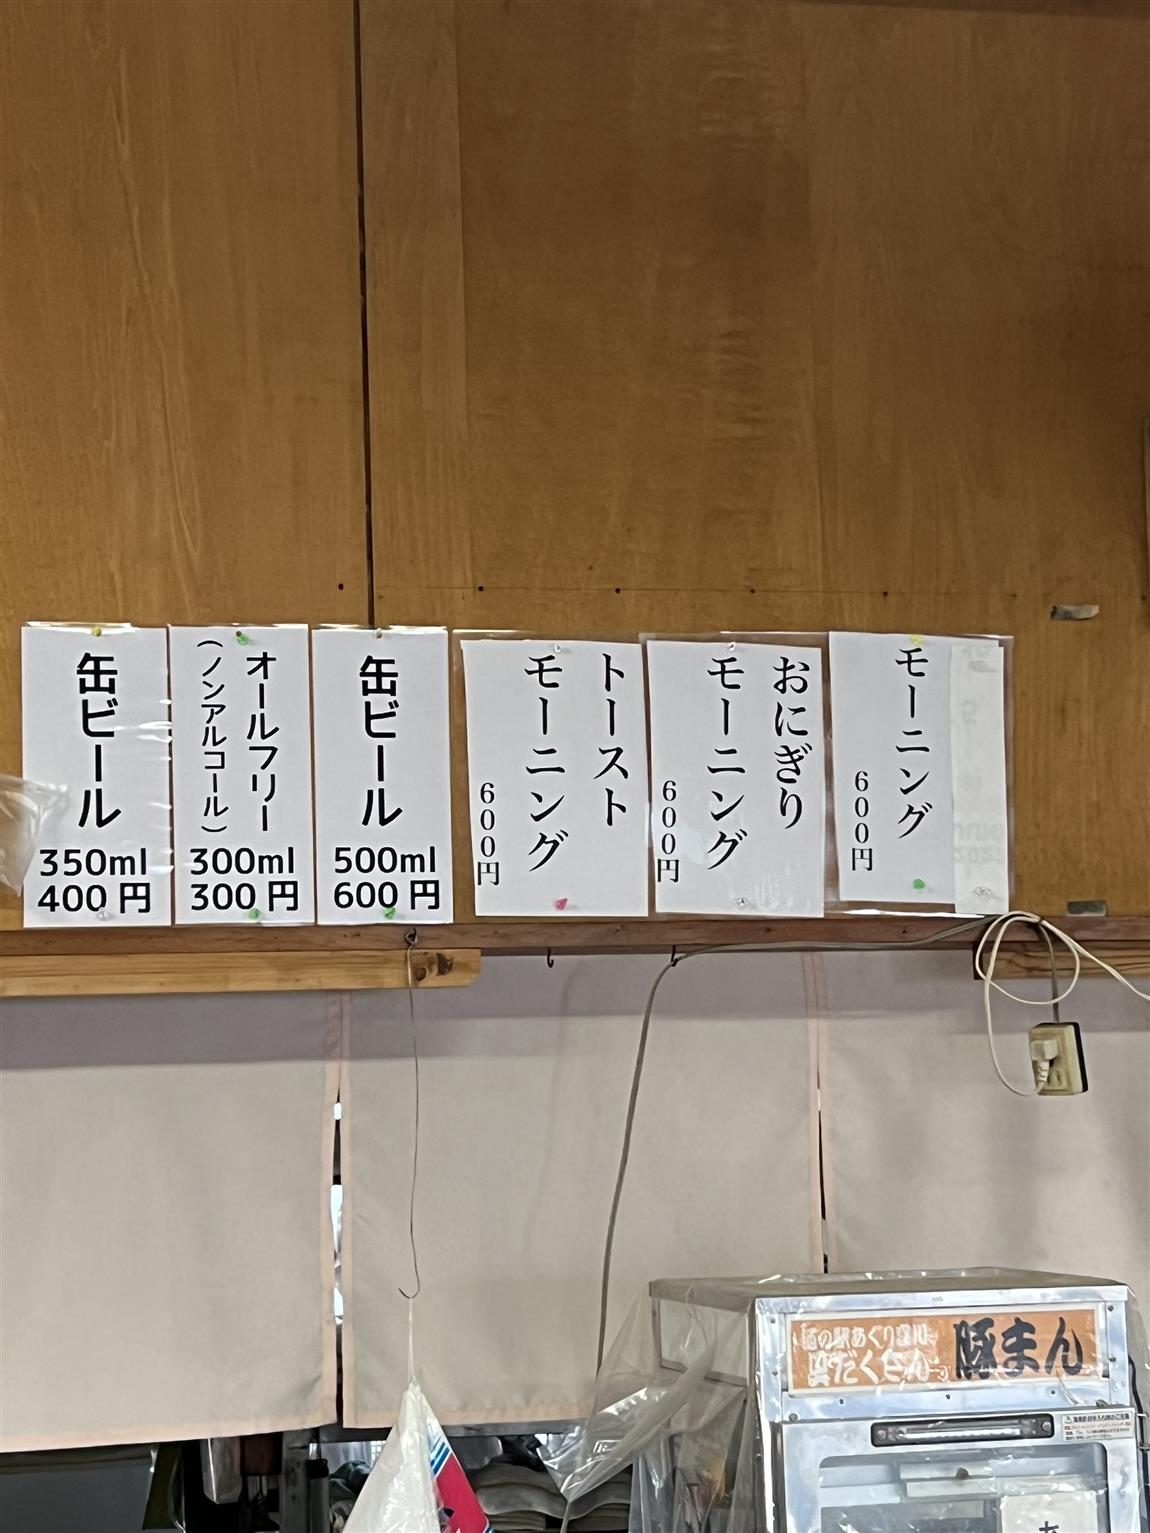 缶ビール
350ml
400円
オールフリー
（ノンアルコール）
300ml
300円
缶ビール
500ml
600円
トースト
モーニング
600円
おにぎり
モーニング
600円
モーニング
600円
道の駅あぐり窪川
具だくさん
豚まん